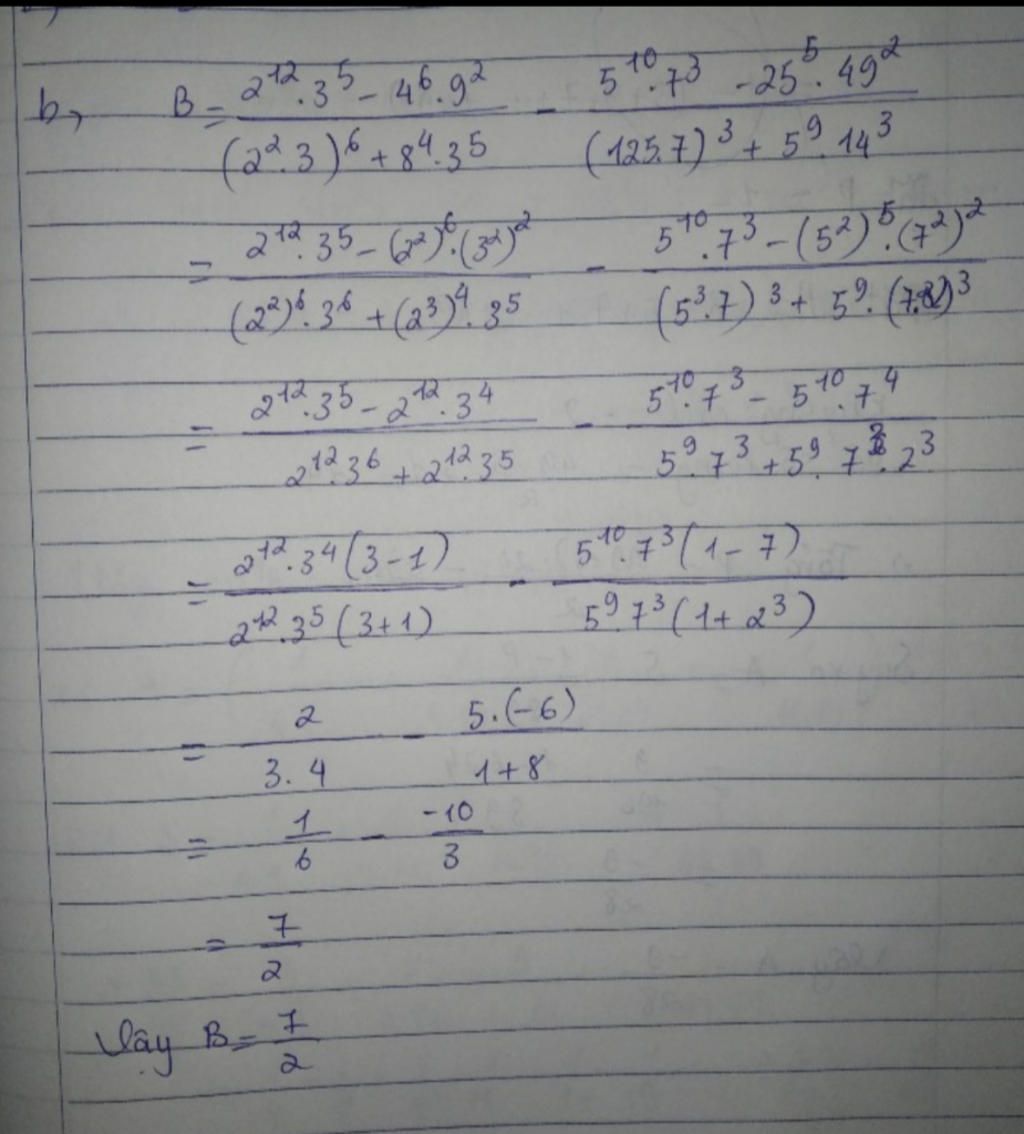 b, B = \frac{2^{12}.3^5 - 4^6.9^2}{(2^2.3)^6 + 8^4.3^5} - \frac{5^{10}.7^3 - 25^5.49^2}{(125.7)^3 + 5^9.14^3}
= \frac{2^{12}.3^5 - (2^2)^6.(3^2)^2}{(2^2)^6.3^6 + (2^3)^4.3^5} - \frac{5^{10}.7^3 - (5^2)^5.(7^2)^2}{(5^3.7)^3 + 5^9.(7.2)^3}
= \frac{2^{12}.3^5 - 2^{12}.3^4}{2^{12}.3^6 + 2^{12}.3^5} - \frac{5^{10}.7^3 - 5^{10}.7^4}{5^9.7^3 + 5^9.7^3.2^3}
= \frac{2^{12}.3^4(3-1)}{2^{12}.3^5(3+1)} - \frac{5^{10}.7^3(1-7)}{5^9.7^3(1+2^3)}
= \frac{2}{3.4} - \frac{5.(-6)}{1+8}
= \frac{1}{6} - \frac{-10}{3}
= \frac{7}{2}
Vậy B = \frac{7}{2}